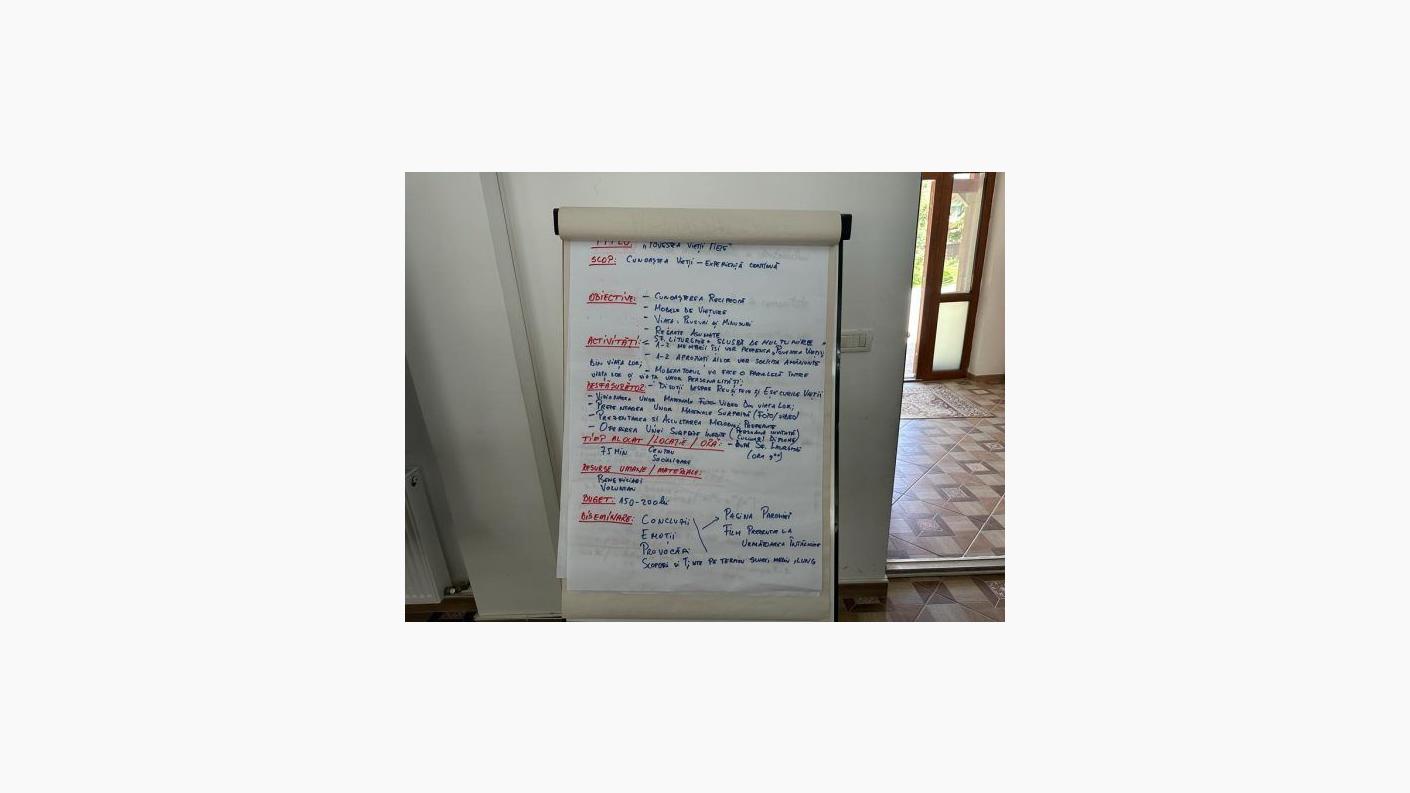 TITLU: „POVESTEA VIEȚII MELE"
SCOP: CUNOAȘTEA VIEȚII – EXPERIENȚĂ CONTINUĂ
OBIECTIVE: – CUNOAȘTEREA RECIPROCĂ
– MODELE DE VIEȚUIRE
– VIAȚA: PLUSURI ȘI MINUSURI
– REGRETE ASUMATE
ACTIVITĂȚI: – SF. LITURGHIE + SLUJBĂ DE MULȚUMIRE
1-2 MEMBRII ÎȘI VOR PREZENTA „POVESTEA VIEȚII"
– 1-2 APROPIAȚI AI LOR VOR SOLICITA AMĂNUNTE
DIN VIAȚA LOR;
– MODERATORUL VA FACE O PARALELĂ ÎNTRE
VIAȚA LOR ȘI VIAȚA UNOR PERSONALITĂȚI;
DESFĂȘURĂTOR: – DISCUȚII DESPRE REUȘITELE ȘI EȘECURILE VIEȚII
– VIZIONAREA UNOR MATERIALE FOTO/VIDEO DIN VIAȚA LOR;
– PREZENTAREA UNOR MATERIALE SURPRIZĂ (FOTO/VIDEO)
– PREZENTAREA SI ASCULTAREA MELODIEI PREFERATE
– OFERIREA UNEI SURPRIZE INEDITE (PERSOANĂ INVITATĂ)
TIMP ALOCAT / LOCAȚIE / ORĂ: – DUPĂ SF. LITURGHIE
75 MIN CENTRU (ORA 9⁰⁰)
SOCIALIZARE
RESURSE UMANE / MATERIALE:
BENEFICIARI
VOLUNTARI
BUGET: 150-200 lei
DISEMINARE: CONCLUZII PAGINA PAROHIEI
EMOȚII FILM PREZENTAT LA
PROVOCĂRI URMĂTOAREA ÎNTÂLNIRE
SCOPURI ȘI ȚINTE PE TERMEN SCURT, MEDIU, LUNG